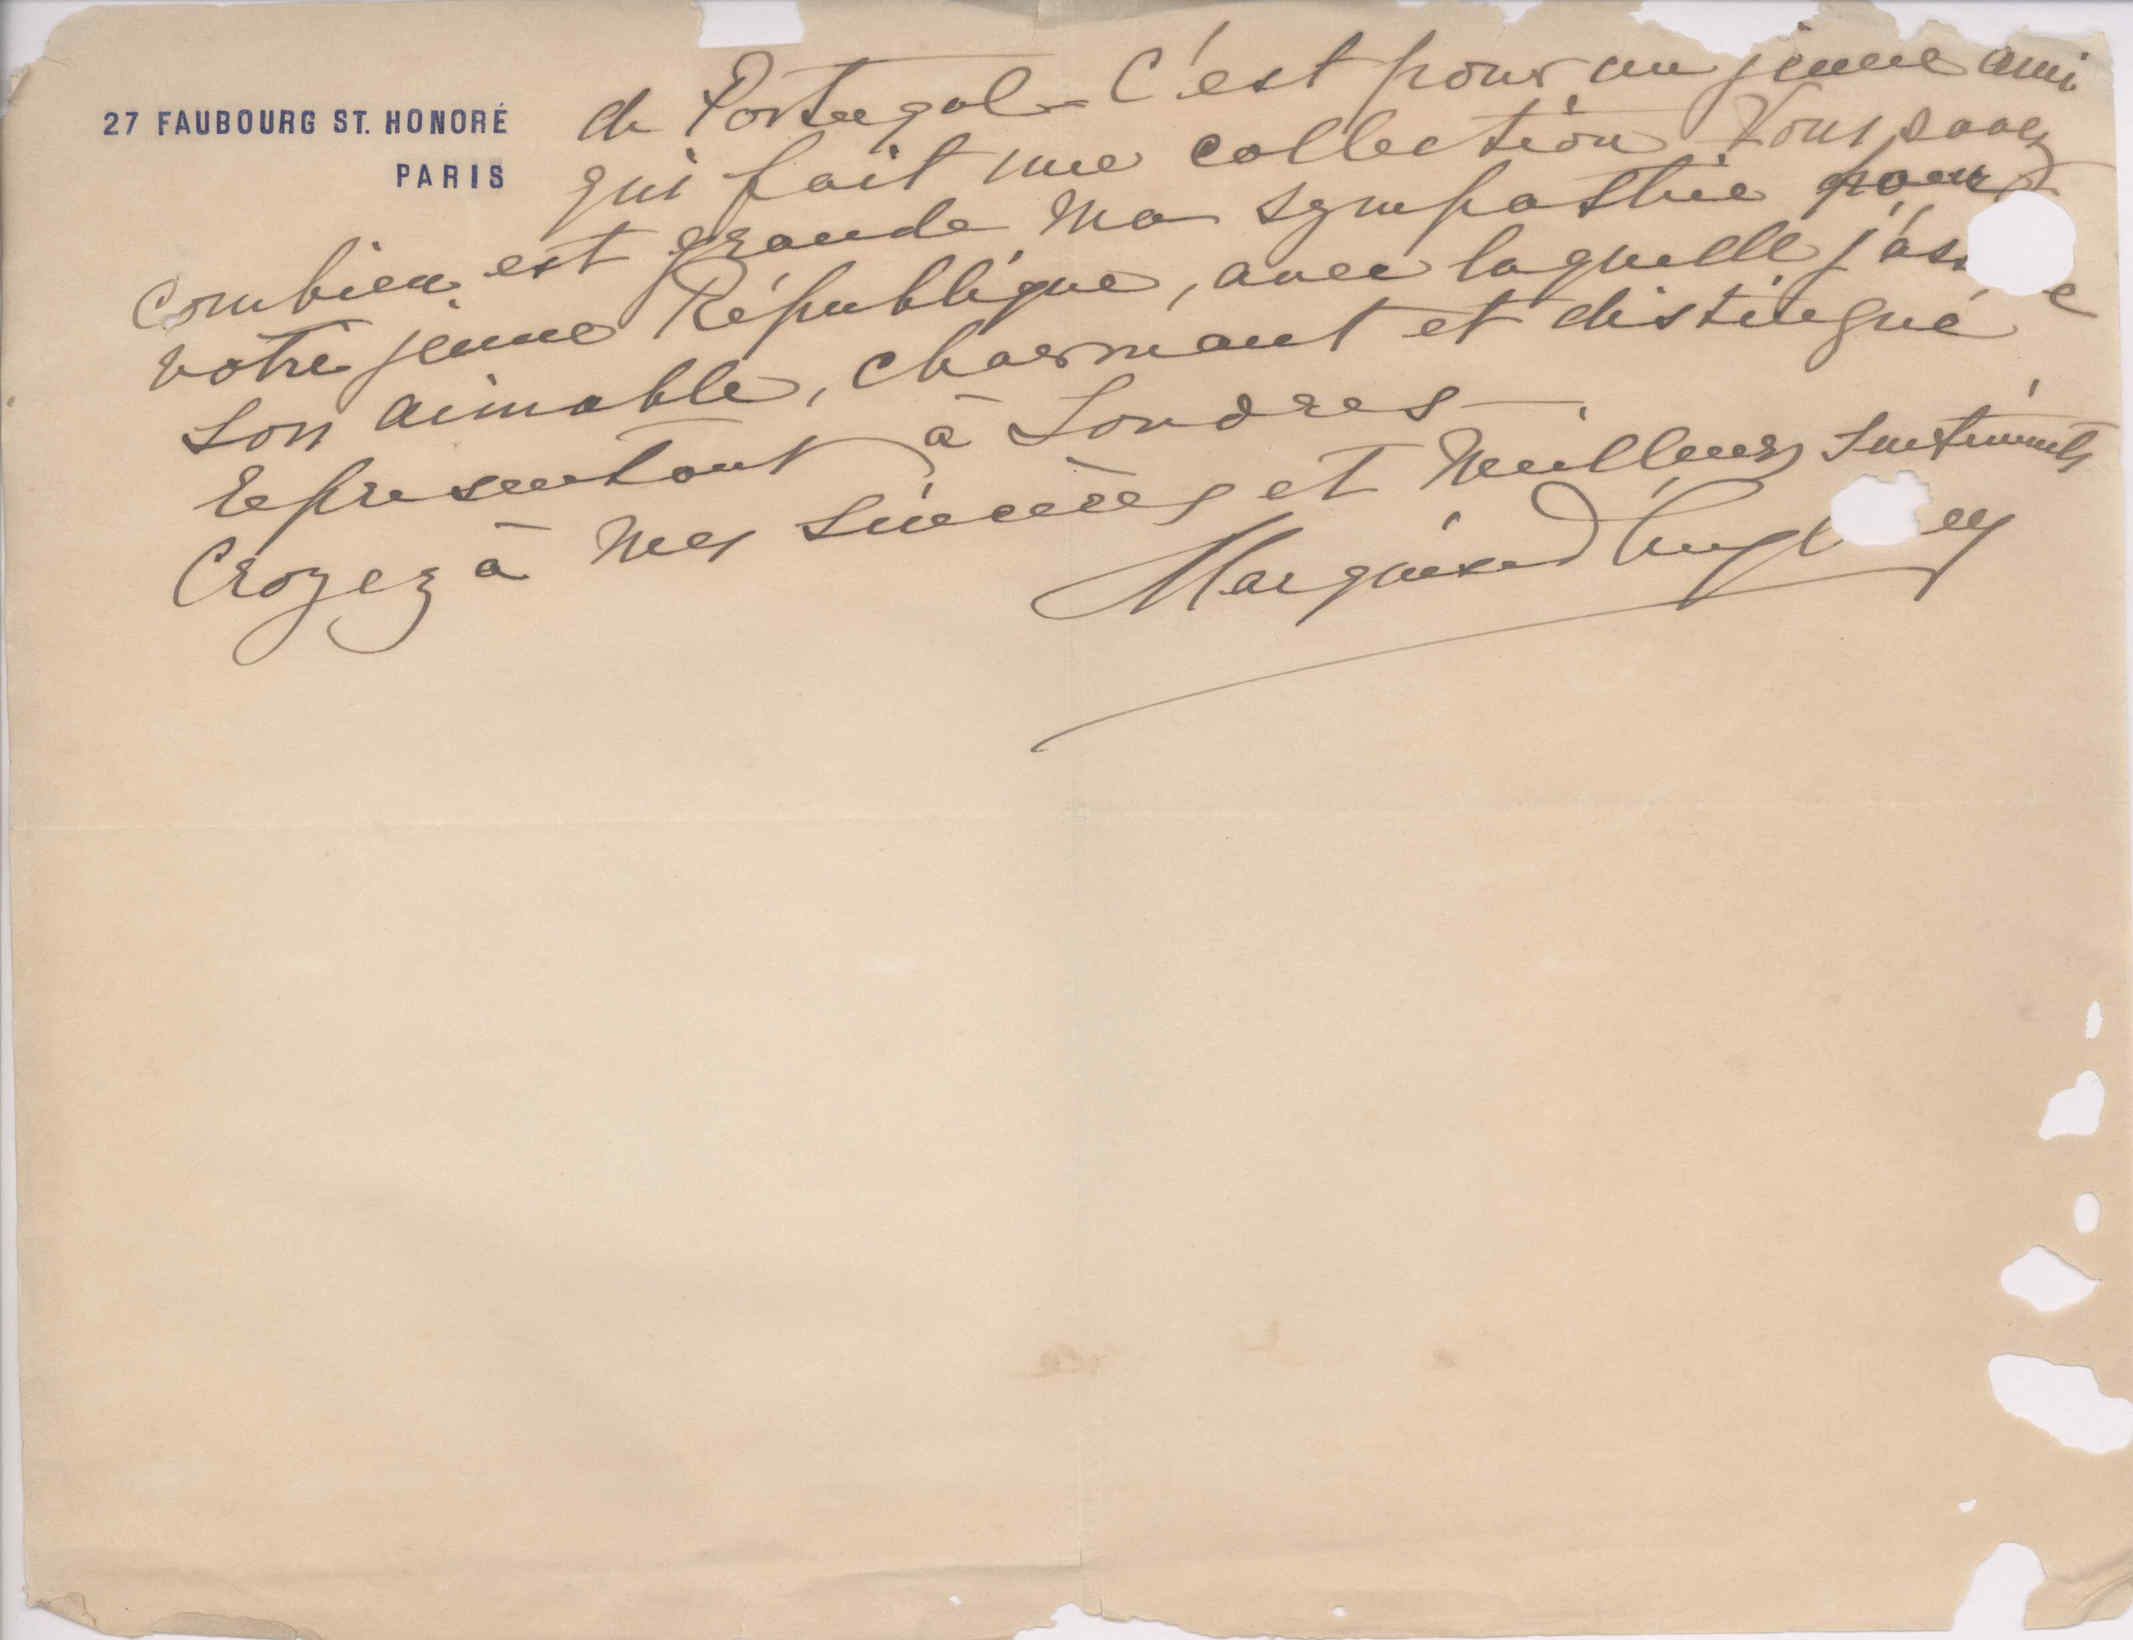 27 FAUBOURG ST. HONORÉ
PARIS
de Portugal – C'est pour un jeune ami
qui fait une collection Vous savez
combien est grande ma sympathie pour
votre jeune République, avec laquelle j'as e
son aimable, charmant et distingué
representant à Londres –
Croyez à mes sincères et meilleurs sentiments
Marquise d